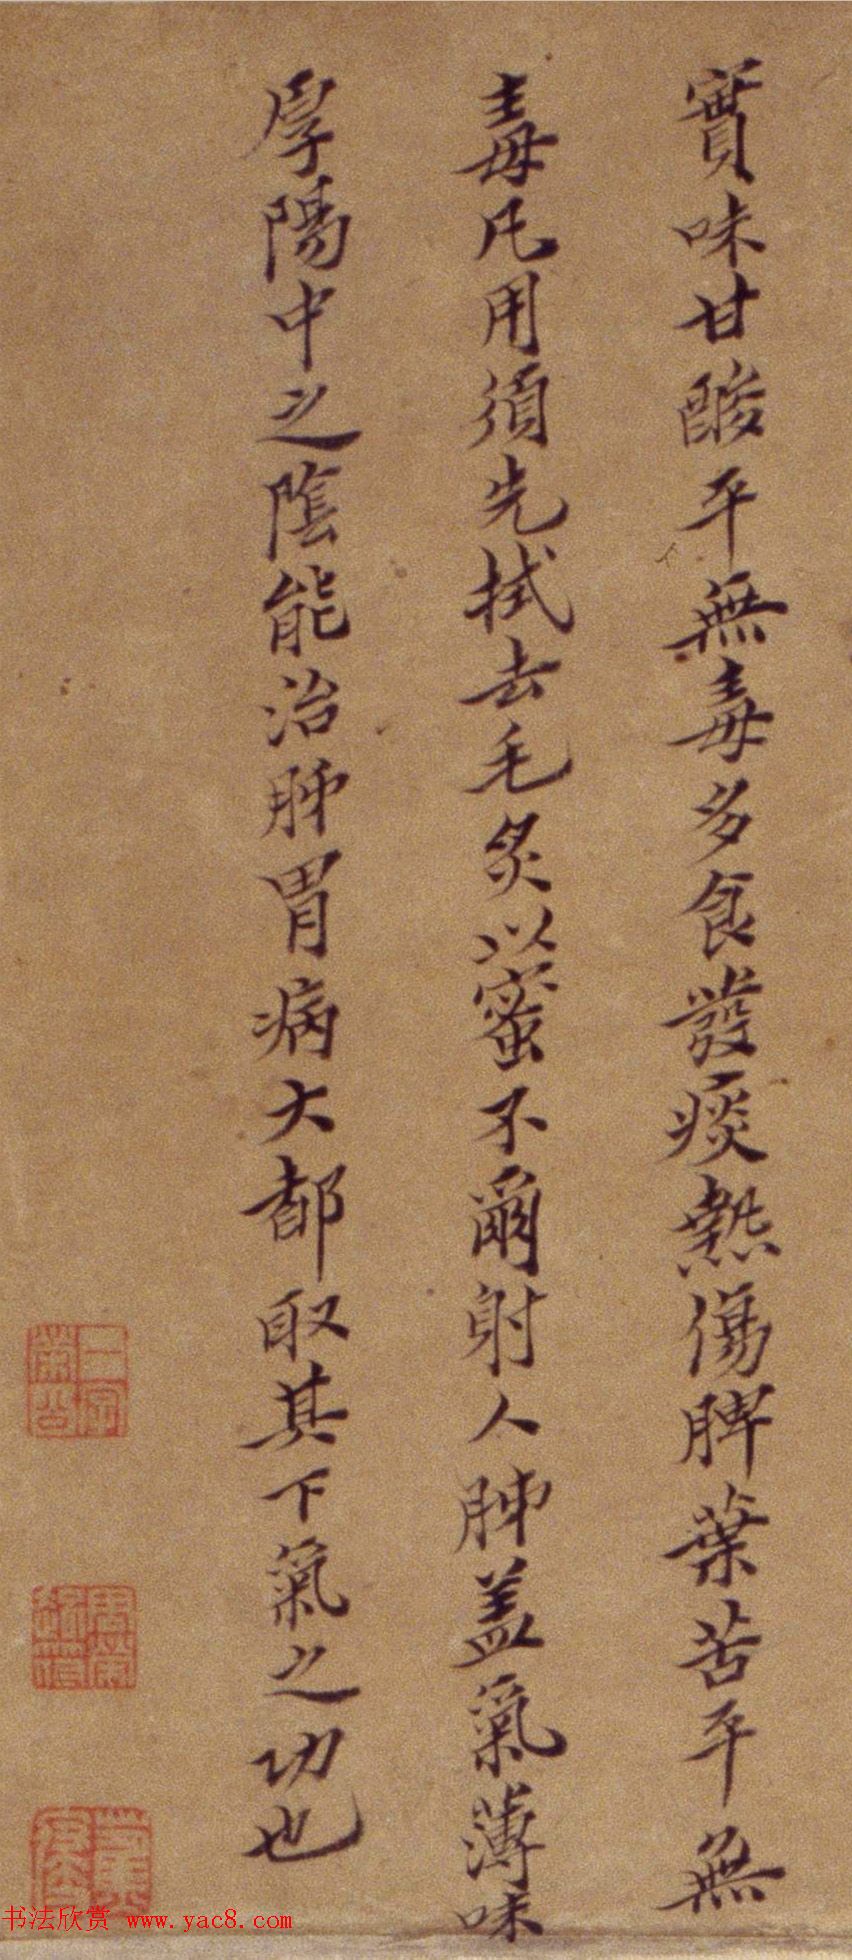 實味甘酸平無毒多食發痰熱傷脾葉苦平無
毒凡用須先拭去毛炙以蜜不爾射人肺蓋氣薄味
厚陽中之陰能治肺胃病大都取其下氣之功也
书法欣赏 www.yac8.com